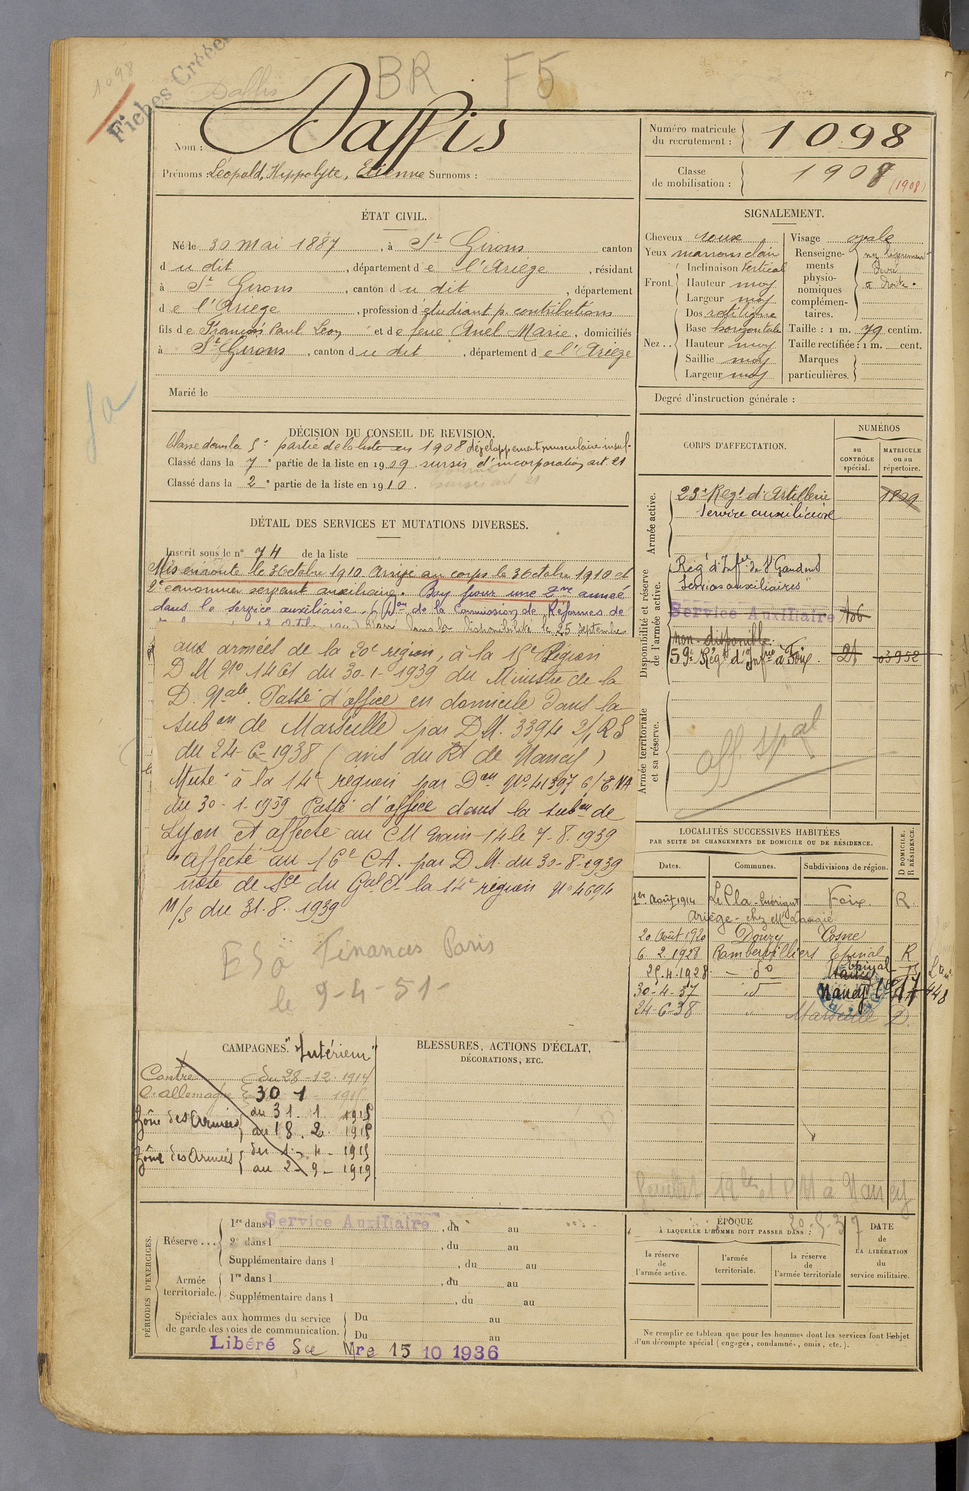 1098
Fiches Créées
Daffis
BR F5
Nom : Daffis
Prénoms : Léopold, Hippolyte, Etienne Surnoms :
Numéro matricule du recrutement : 1098
Classe de mobilisation : 1908 (1908)
ÉTAT CIVIL.
Né le 30 mai 1887, à St Girons canton
du dit, département de l'Ariège, résidant
à St Girons, canton du dit, département
de l'Ariège, profession d'étudiant p. contributions
fils de François Paul Léon et de feue Anel Marie, domiciliés
à St Girons, canton du dit, département de l'Ariège
Marié le
SIGNALEMENT.
Cheveux roux
Yeux marrons clair
Front. Inclinaison vertical
Hauteur moy
Largeur moy
Nez .. Dos rectiligne
Base horizontale
Hauteur moy
Saillie moy
Largeur moy
Visage ovale
Renseignements physionomiques complémentaires. nez légèrement
à droite.
Taille : 1 m. 79 centim.
Taille rectifiée : 1 m. cent.
Marques particulières.
Degré d'instruction générale :
DÉCISION DU CONSEIL DE REVISION.
Classé dans la 5e partie de la liste en 1908 développement musculaire insuf.
Classé dans la 7e partie de la liste en 1909 sursis d'incorporation art 21
Classé dans la 2e partie de la liste en 1910.
DÉTAIL DES SERVICES ET MUTATIONS DIVERSES.
Inscrit sous le n° 74 de la liste
Mis en route le 3 Octobre 1910. Arrivé au corps le 3 Octobre 1910 et
2e canonnier servant auxiliaire. Bon pour une 2me année
dans le service auxiliaire. (Don de la Commission de Réformes de
dans la disponibilité le 25 septembre
aux armées de la 20e région, à la 15e Région
D M N° 1461 du 30-1-1939 du Ministre de la
D. Nale. Passé d'office en domicile dans la
subon de Marseille par D.M. 3394 2/RS
du 24-6-1938 (avis du Rt de Nancy)
Muté à la 14e région par Don N° 41397
du 30-1-1939 Passé d'office dans la subon de
Lyon et affecté au CM train 14 le 7-8-1939
affecté au 16e CA. par D.M. du 30-8-1939
note de Sce du Gal Ct la 14e région N° 4694
11/S du 31-8-1939
ES à Finances Paris
le 9-4-51-
CORPS D'AFFECTATION.
NUMÉROS
au CONTRÔLE spécial.
MATRICULE ou au répertoire.
Armée active.
23e Regt d'Artillerie 1909
Service auxiliaire
Disponibilité et réserve de l'armée active.
Reg. d'Infie de St Gaudens
"Services auxiliaires"
Service Auxiliaire 106
non-disponible
59e Régt d'Infie à Foix.
Armée territoriale et sa réserve.
aff. spal
LOCALITÉS SUCCESSIVES HABITÉES
PAR SUITE DE CHANGEMENTS DE DOMICILE OU DE RÉSIDENCE.
Dates. Communes. Subdivisions de région. D DOMICILE. R RÉSIDENCE.
1er Août 1914 Le Pla - Quérigut Foix. R.
Ariège - chez Mr
20 Août 1920 Donzy Cosne
6 2.1928 Rambervilliers Epinal R
25.4.1928 - do Epinal
30-4-37 " d Nancy
24-6-38 " Marseille D.
CAMPAGNES. "Intérieur"
Contre du 28-12-1914
l'Allemagne 30 1 1915
Zône des Armées du 31. 1 1915
au 18. 2. 1915
Zône des Armées du 1-4-1915
au 2-9-1919
BLESSURES, ACTIONS D'ÉCLAT,
DÉCORATIONS, ETC.
20-5-37
PÉRIODES D'EXERCICES.
Réserve... 1re dans l Service Auxiliaire, du au
2e dans l , du au
Supplémentaire dans l , du au
Armée territoriale. 1re dans l , du au
Supplémentaire dans l , du au
Spéciales aux hommes du service de garde des voies de communication. Du au
Du au
Libéré Sce Mre 15 10 1936
ÉPOQUE
À LAQUELLE L'HOMME DOIT PASSER DANS :
la réserve de l'armée active.
l'armée territoriale.
la réserve de l'armée territoriale
DATE de LA LIBÉRATION du service militaire.
Ne remplir ce tableau que pour les hommes dont les services font l'objet
d'un décompte spécial (engagés, condamnés, omis, etc.).